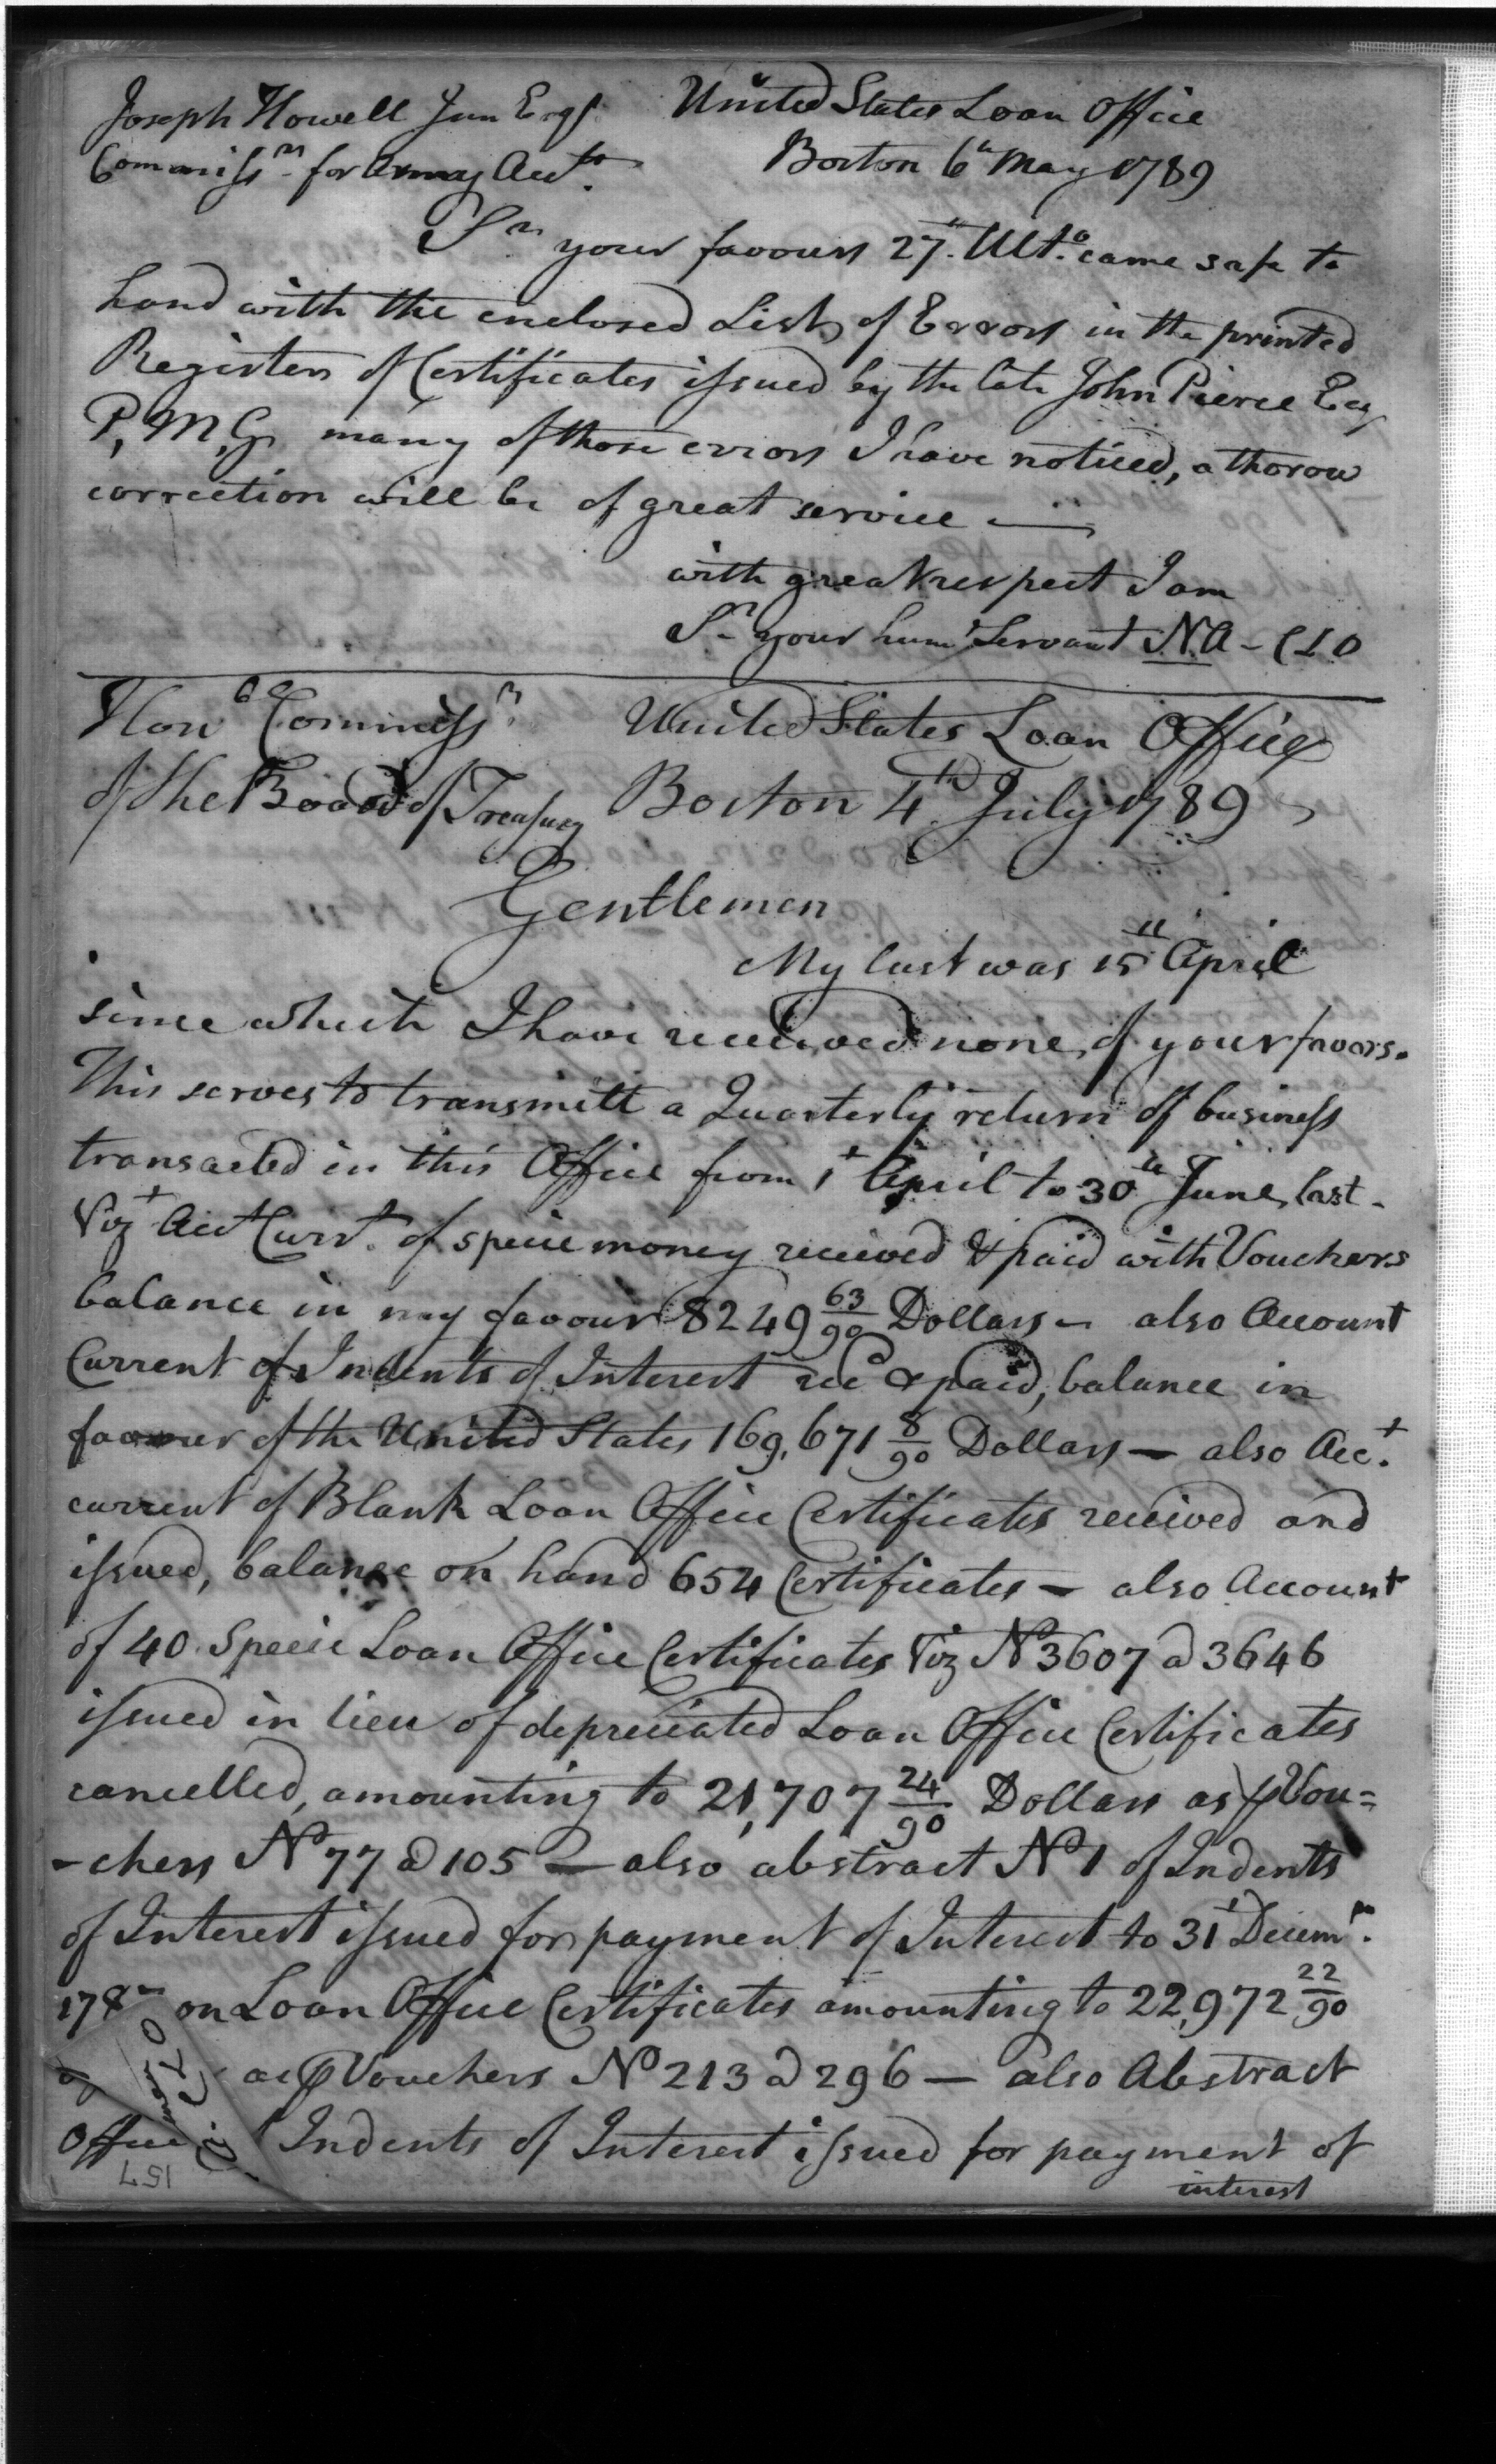 Joseph Howell Jun Esqr. United States Loan Office
Commissr. for Army Accts. Boston 6th May 1789
Sr. your favour 27th. Ulto. came safe to
hand with the enclosed List of Errors in the printed
Registers of Certificates issued by the late John Pierce Esq
P, M, G, many of those errors I have noticed, a thorow
correction will be of great service —
with great respect I am
Sr. your humb Servant N A - C L O
Honble Commissrs. United States Loan Office
of the Board of Treasury Boston 4th July 1789
Gentlemen
My last was 15th April
since which I have received none of your favors.
This serves to transmitt a Quarterly return of business
transacted in this Office from 1t April to 30th June last -
Vizt Acct Currt. of specie money received & paid with Vouchers
balance in my favour 8249 63/90 Dollars — also Account
Current of Indents of Interest recd & paid, balance in
favour of the United States 169,671 8/90 Dollars — also Acct.
current of Blank Loan Office Certificates received and
issued, balance on hand 654 Certificates — also Account
of 40 Specie Loan Office Certificates Viz No 3607 a 3646
issued in lieu of depreciated Loan Office Certificates
cancelled, amounting to 21,707 24/90 Dollars as p Vou=
-chers No 77 a 105 — also abstract No 1 of Indents
of Interest issued for payment of Interest to 31t Decemr.
178 on Loan Office Certificates amounting to 22,972 22/90
as p Vouchers No 213 a 296 — also Abstract
Office Indents of Interest issued for payment of
interest
157